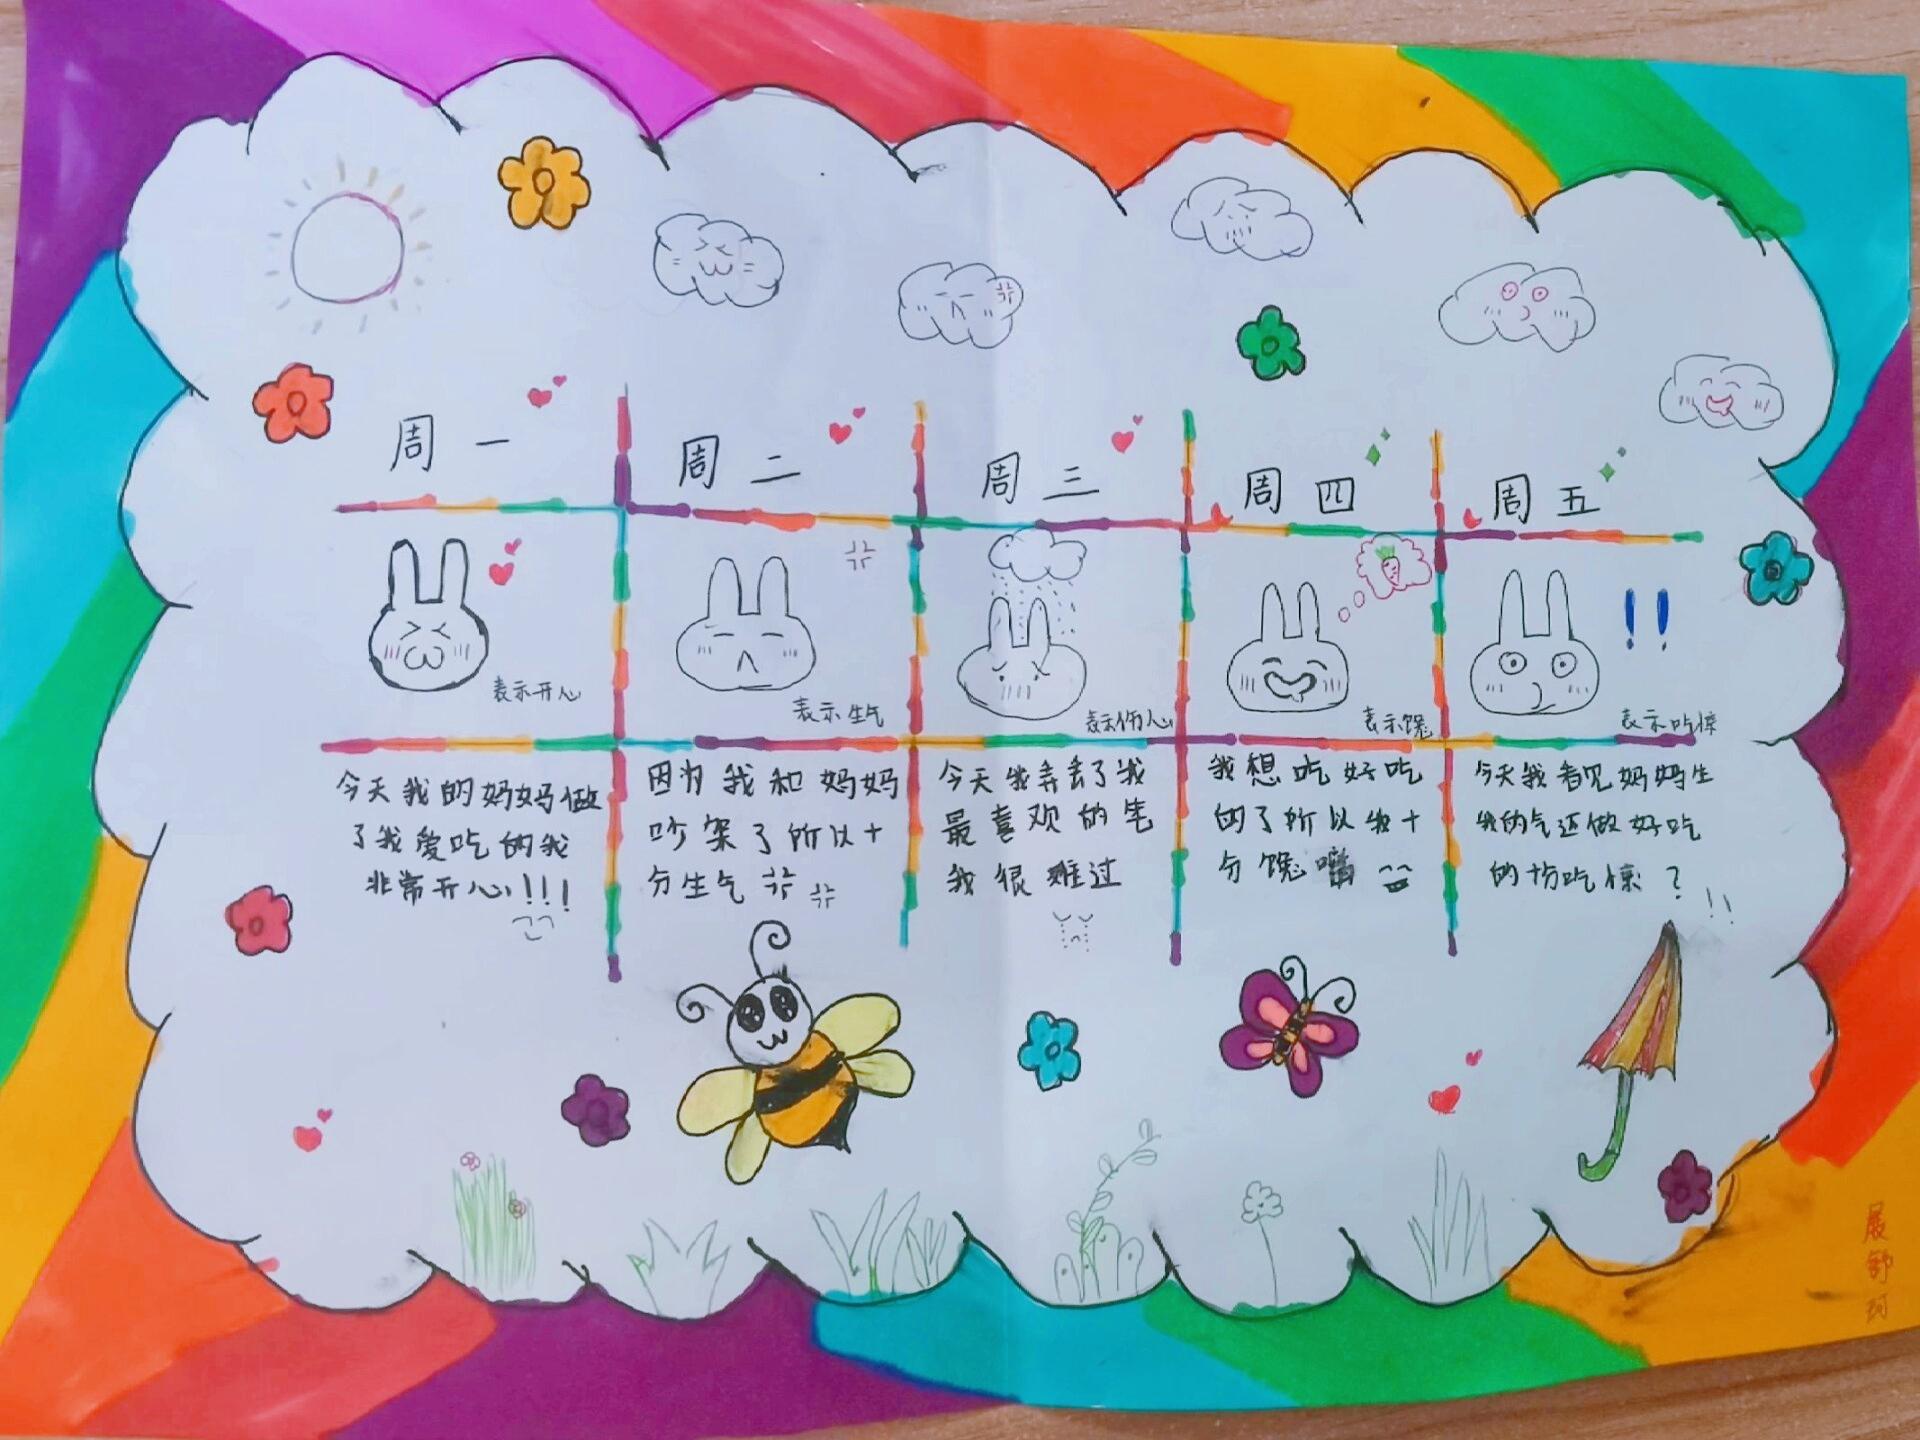 周一
周二
周三
周四
周五
表示开心
表示生气
表示伤心
表示馋
表示吃惊
今天我的妈妈做
了我爱吃的我
非常开心!!!
因为我和妈妈
吵架了所以十
分生气
今天我弄丢了我
最喜欢的笔
我很难过
我想吃好吃
的了所以我十
分馋嘴
今天我看见妈妈生
我的气还做好吃
的十分吃惊?
!!
展舒珂